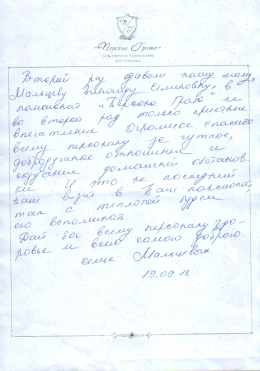 «Персона Грата»
Второй раз даём нашу маму
Мальцеву Зинаиду в
пансионат "Персона Грата" и
во второй раз только приятные
впечатления. Огромное спасибо
всему персоналу за чуткое,
добродушное отношение и
создание домашней обстанов-
ки. И это не последний
наш визит в Ваш пансионат,
так с теплотой будем
его вспоминать.
Дай бог всему персоналу здо-
ровье и всего самого доброго.
семья Мальцевых
19.09.18